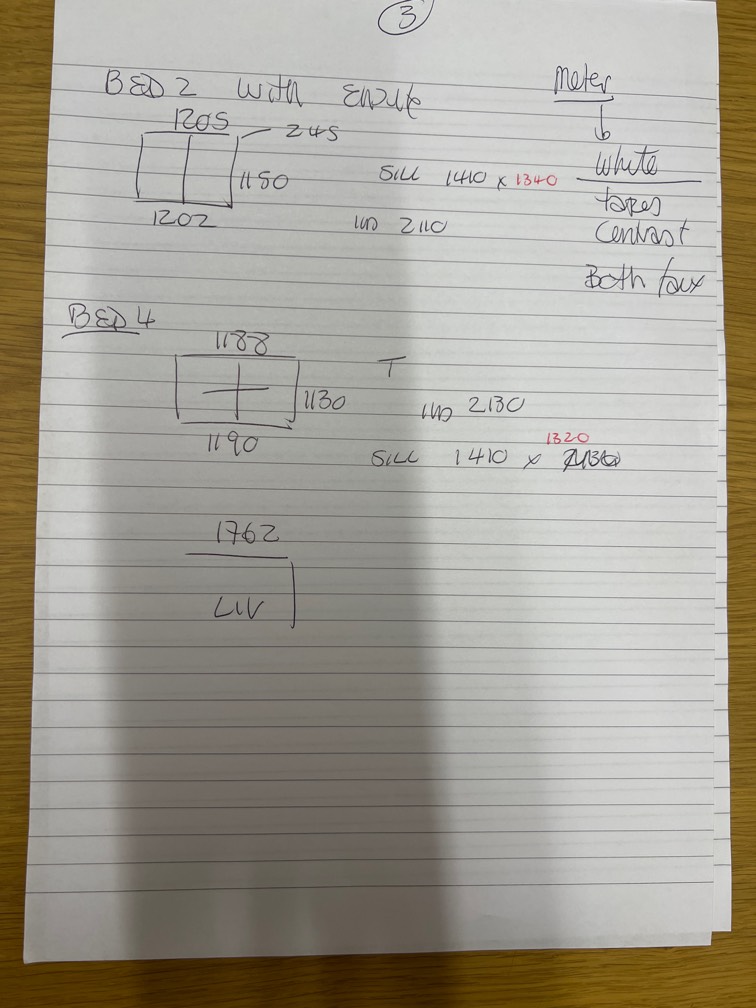 3
BED 2 with Ensuite
meter
1205
245
white
1150
SILL 1410 x 1340
tapes
1202
2110
Contrast
Both faux
BED 4
1188
T
1130
2130
1190
1320
SILL 1410 x
1762
LIV